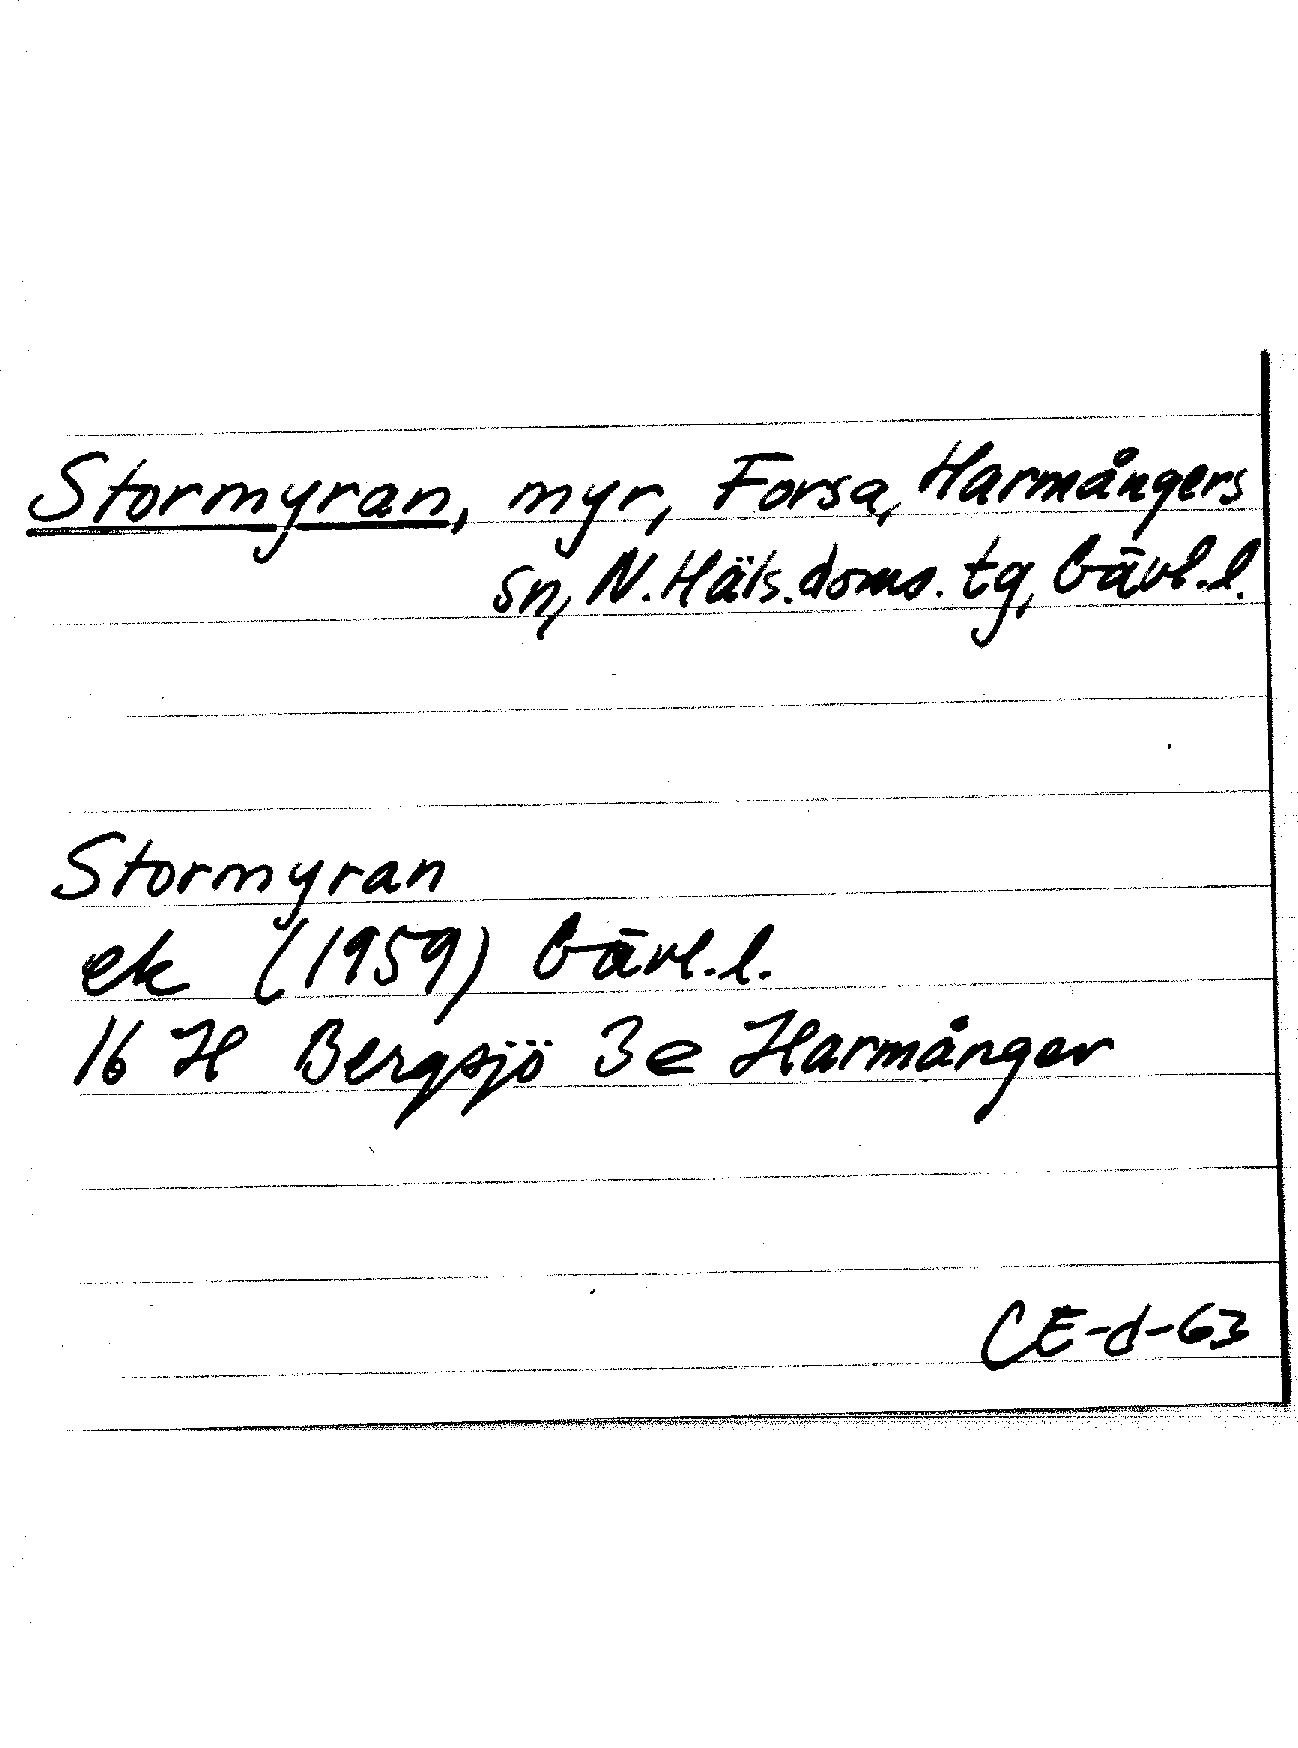 Stormyran, myr, Forsa, Harmångers
sn, N. Häls. doms. tg, Gävl. l.
Stormyran
ek (1959) Gävl. l.
16 H Bergsjö 3e Harmånger
CE-d-63